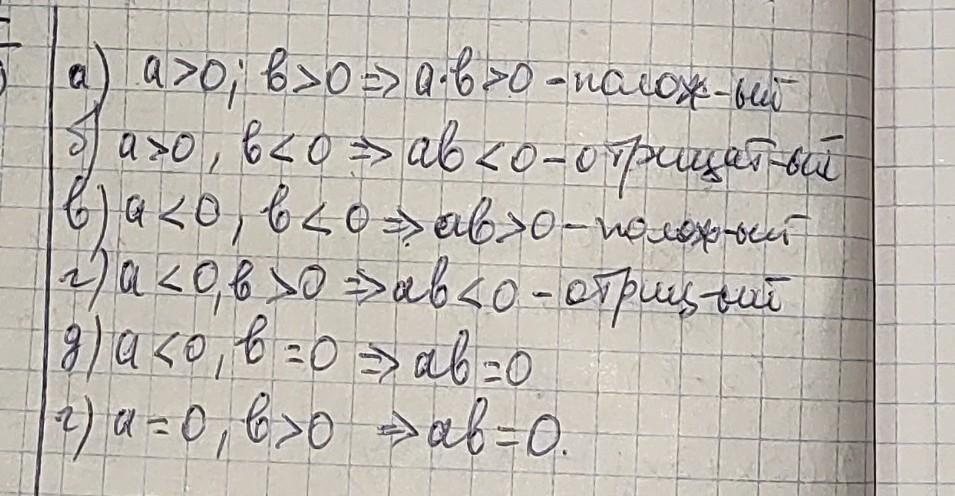 а) a>0; b>0 ⇒ a·b>0 – полож-ый
б) a>0, b<0 ⇒ ab<0 – отрицат-ый
в) a<0, b<0 ⇒ ab>0 – полож-ый
г) a<0, b>0 ⇒ ab<0 – отриц-ый
д) a<0, b=0 ⇒ ab=0
г) a=0, b>0 ⇒ ab=0.